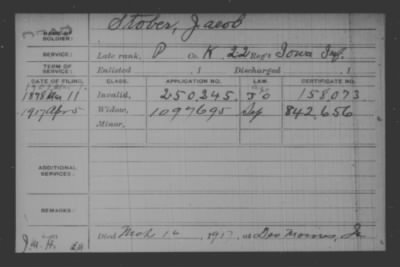 NAME OF SOLDIER: Stober, Jacob
SERVICE: Late rank, P Co. K, 22 Reg't Iowa Inf.
TERM OF SERVICE: Enlisted , 1 Discharged , 1
DATE OF FILING. CLASS. APPLICATION NO. LAW. CERTIFICATE NO.
1878 Mar 11 Invalid, 250,245 158,073
1917 Apr 5 Widow, 1097695 842,656
Minor,
ADDITIONAL SERVICES:
REMARKS:
J.M.H. Died Mch 1917, at Des Moines, Ia